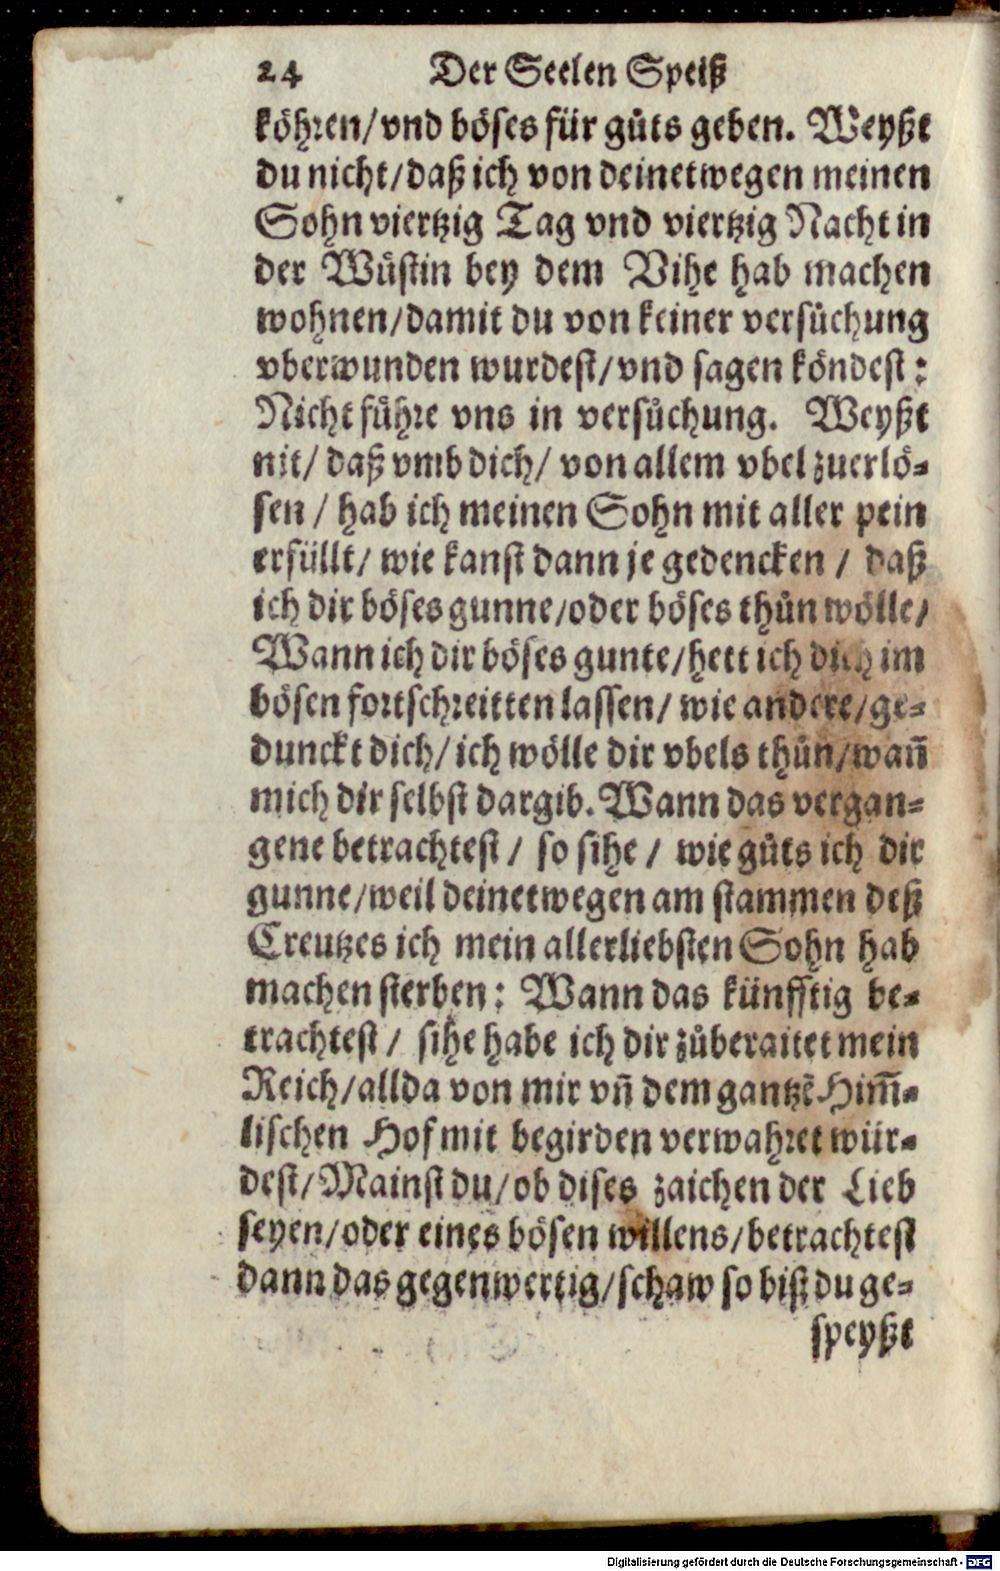 24 Der Seelen Speiß
köhren/vnd böses für gůts geben. Weyßt
du nicht/daß ich von deinetwegen meinen
Sohn viertzig Tag vnd viertzig Nacht in
der Wůstin bey dem Vihe hab machen
wohnen/damit du von keiner versůchung
vberwunden wurdest/vnd sagen köndest:
Nicht fůhre vns in versůchung. Weyßt
nit/ daß vmb dich/ von allem vbel zuerlö-
sen / hab ich meinen Sohn mit aller pein
erfüllt/ wie kanst dann je gedencken / daß
ich dir böses gunne/oder böses thůn wölle/
Wann ich dir böses gunte/hett ich dich im
bösen fortschreitten lassen/ wie andere/ge-
dunckt dich/ich wölle dir vbels thůn/wañ
mich dir selbst dargib. Wann das vergan-
gene betrachtest / so sihe / wie gůts ich dir
gunne/weil deinetwegen am stammen deß
Creutzes ich mein allerliebsten Sohn hab
machen sterben: Wann das künfftig be-
trachtest / sihe habe ich dir zůberaitet mein
Reich/allda von mir vñ dem gantzẽ Him̃-
lischen Hof mit begirden verwahret wür-
dest/Mainst du/ob dises zaichen der Lieb
seyen/oder eines bösen willens/betrachtest
dann das gegenwertig/schaw so bist du ge-
speyßt
Digitalisierung gefördert durch die Deutsche Forschungsgemeinschaft - DFG